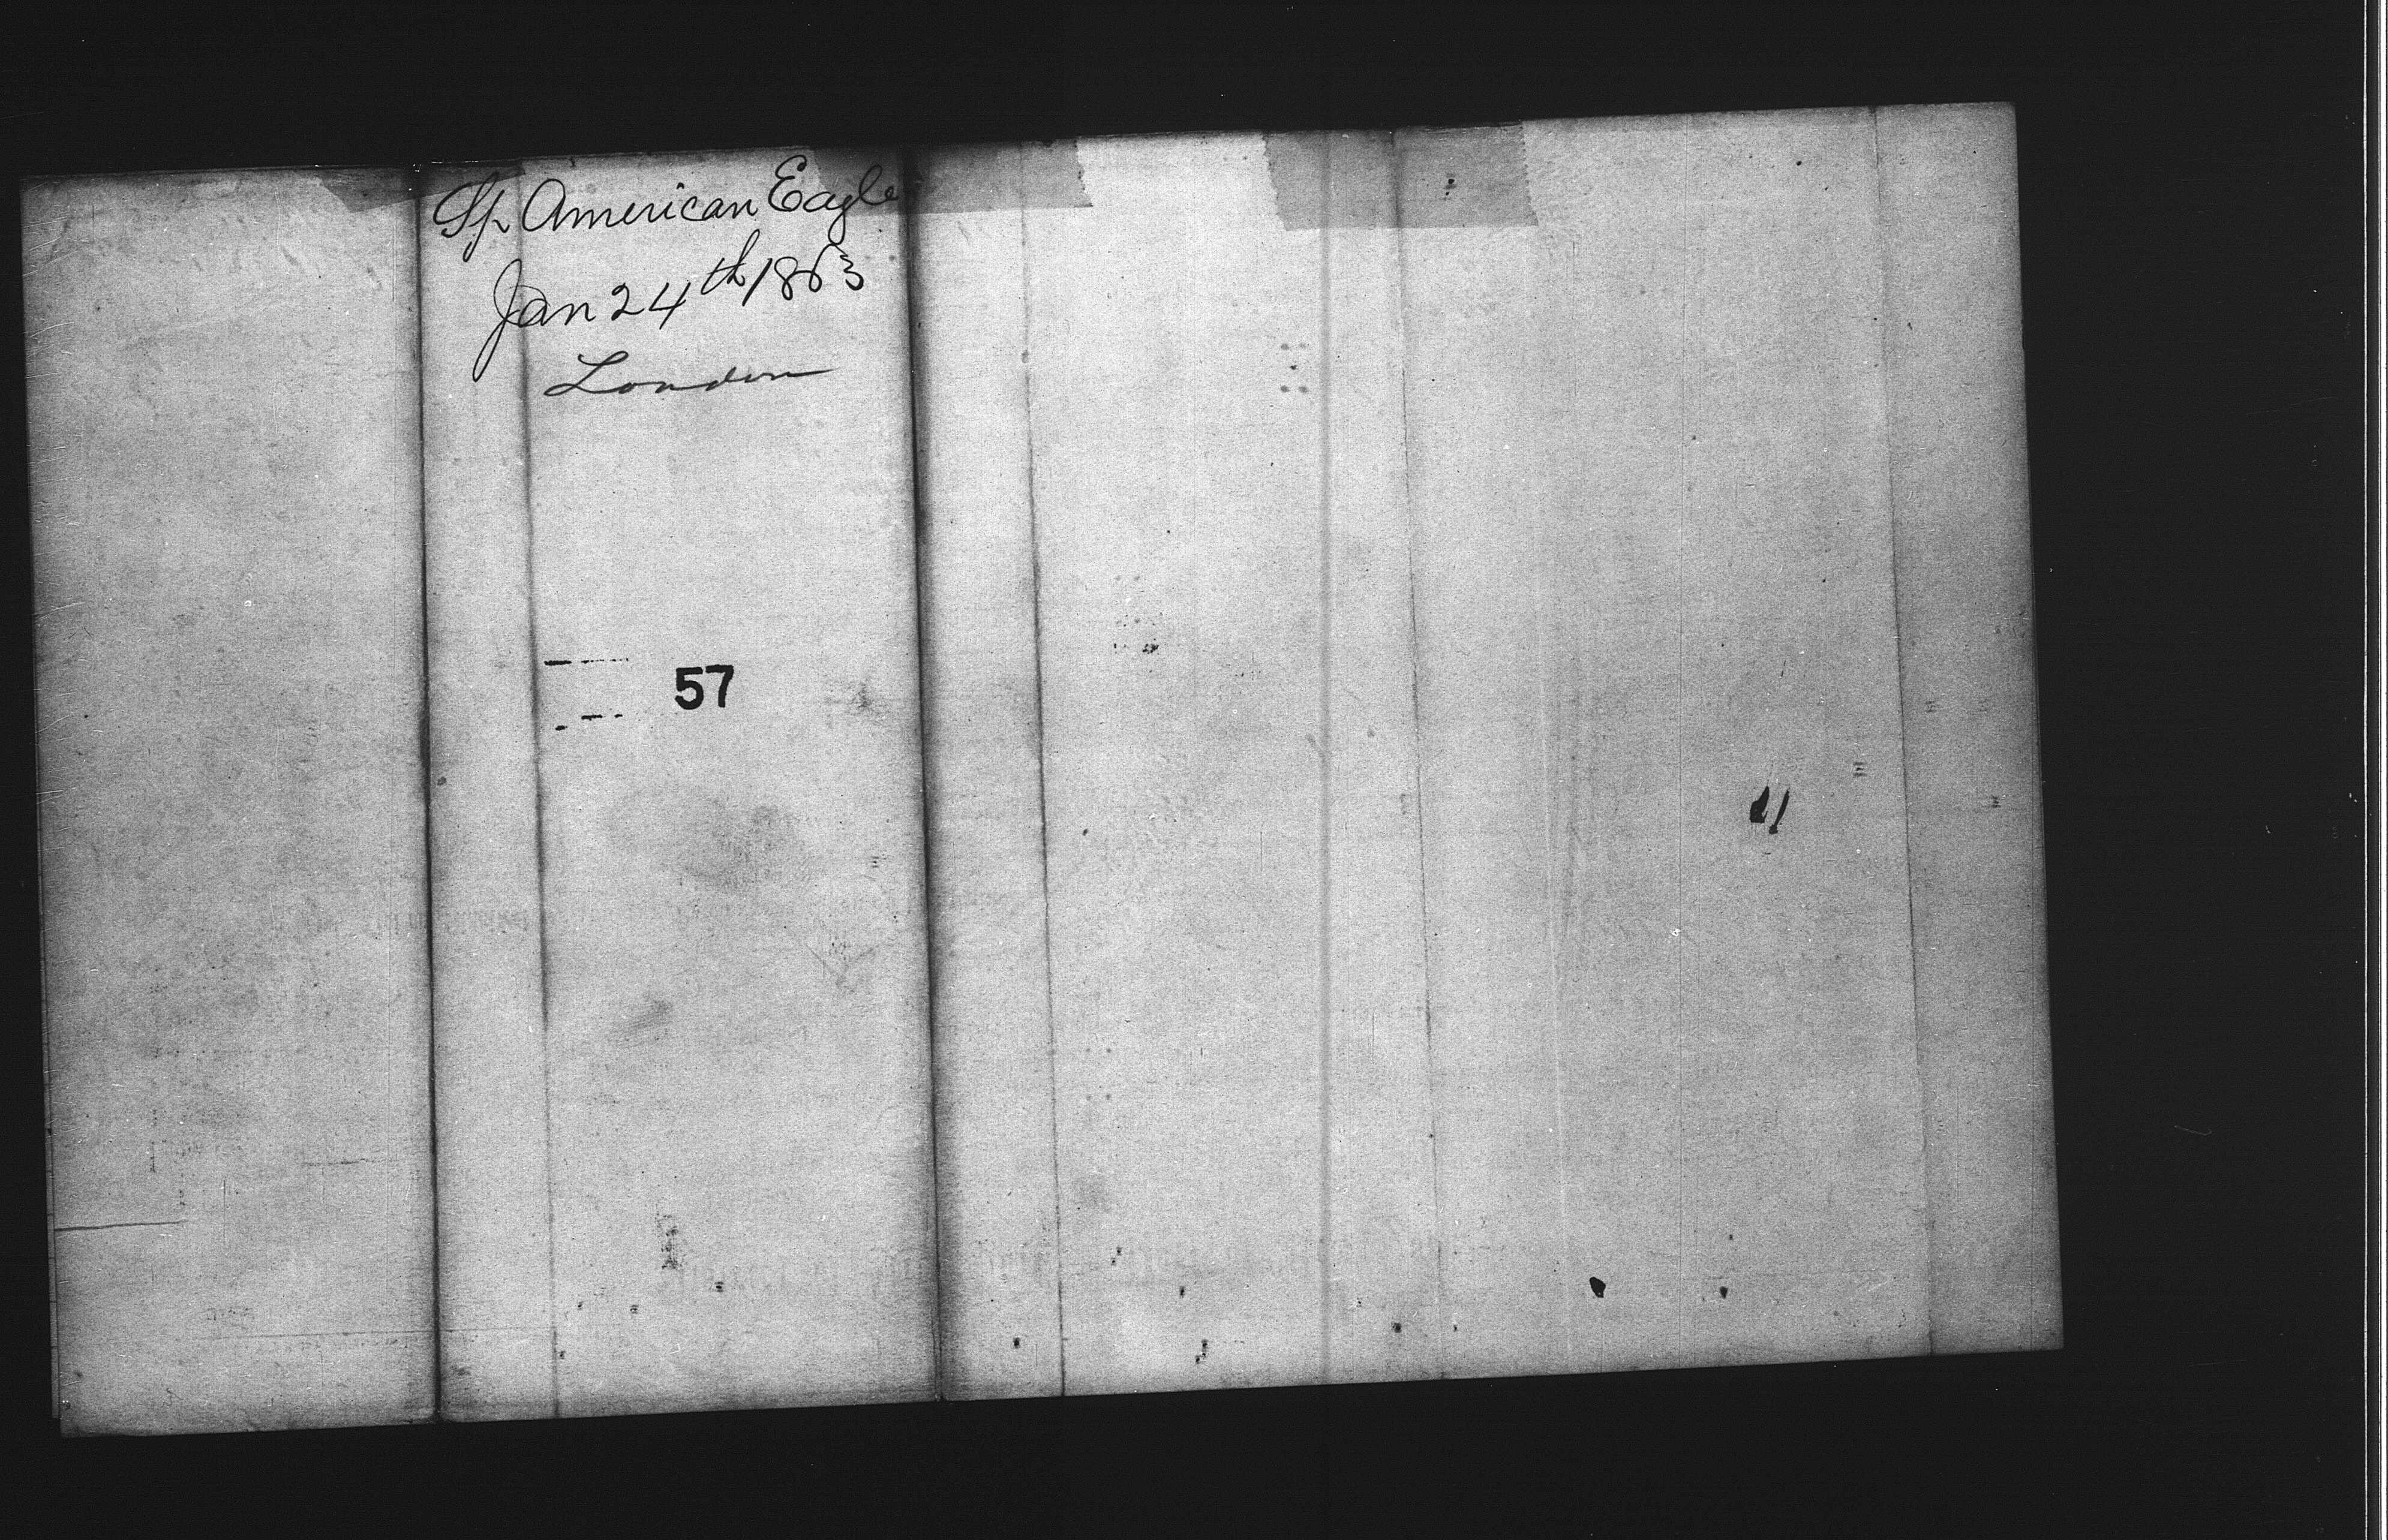 Sp American Eagle
Jan 24th 1863
London
57